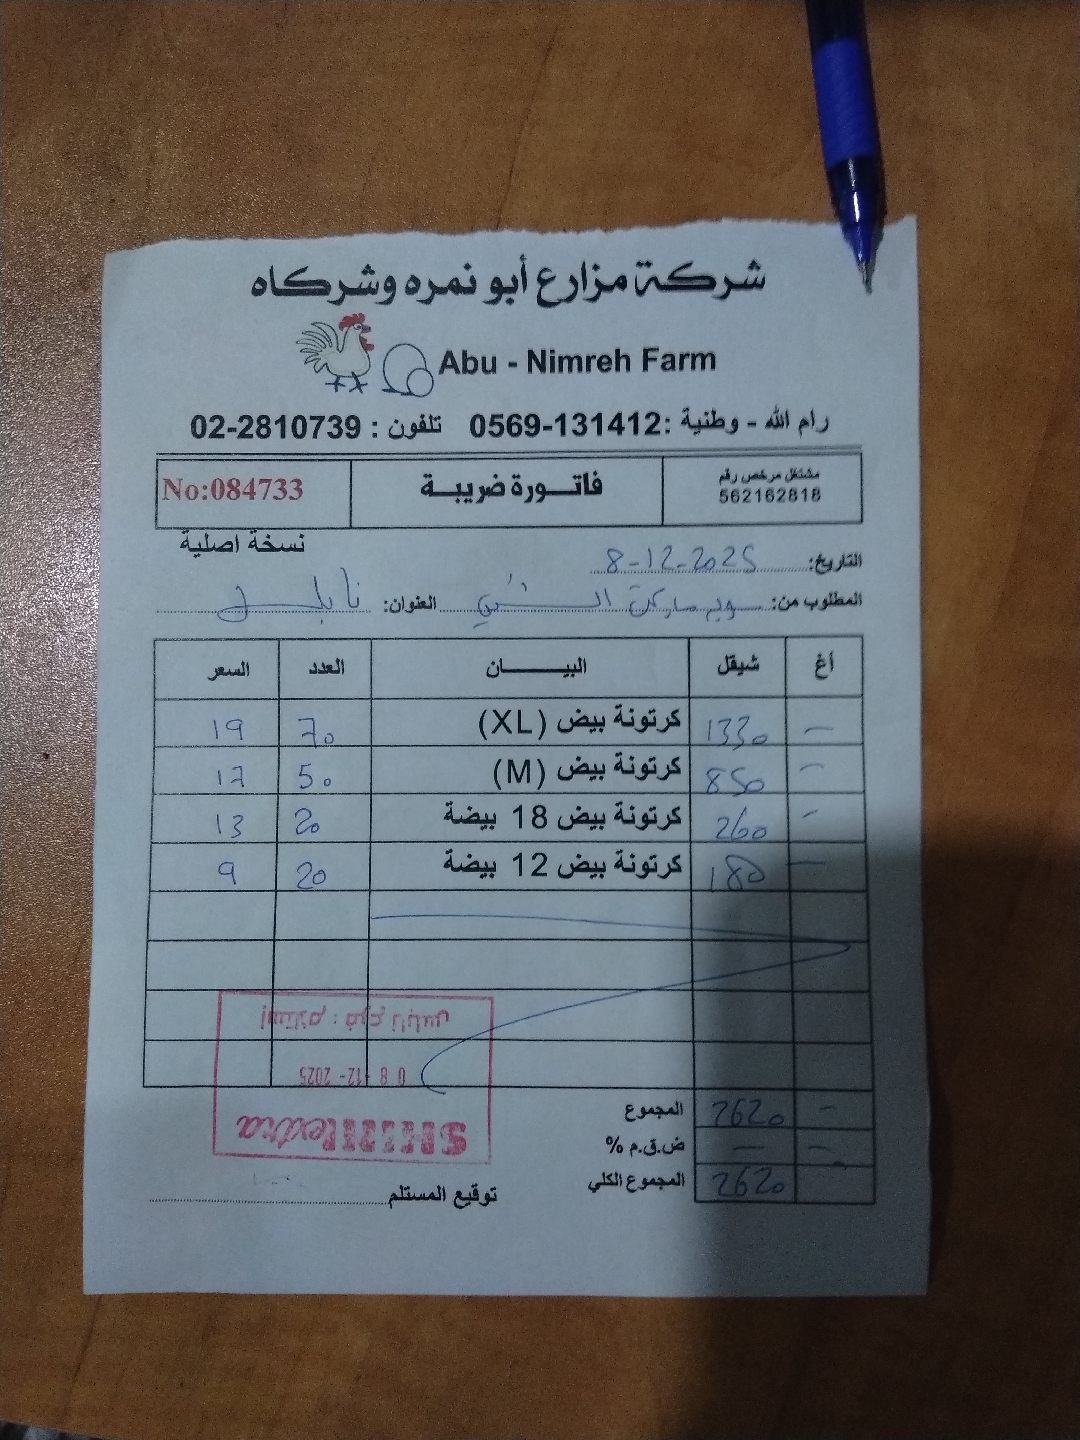 شركة مزارع أبو نمره وشركاه
Abu - Nimreh Farm
رام الله - وطنية :0569-131412 تلفون : 02-2810739
مشتغل مرخص رقم
562162818
فاتـــورة ضريبـــة
No:084733
نسخة اصلية
التاريخ: 8-12-2025
المطلوب من: سوبر ماركت الشني العنوان: نابلس
أغ شيقل البيـــــــان العدد السعر
— 1330 كرتونة بيض (XL) 70 19
— 850 كرتونة بيض (M) 50 17
— 260 كرتونة بيض 18 بيضة 20 13
— 180 كرتونة بيض 12 بيضة 20 9
إستلام : فرع نابلس
08-12-2025
SHINIextra
المجموع 2620 —
ض.ق.م % — —
المجموع الكلي 2620
توقيع المستلم